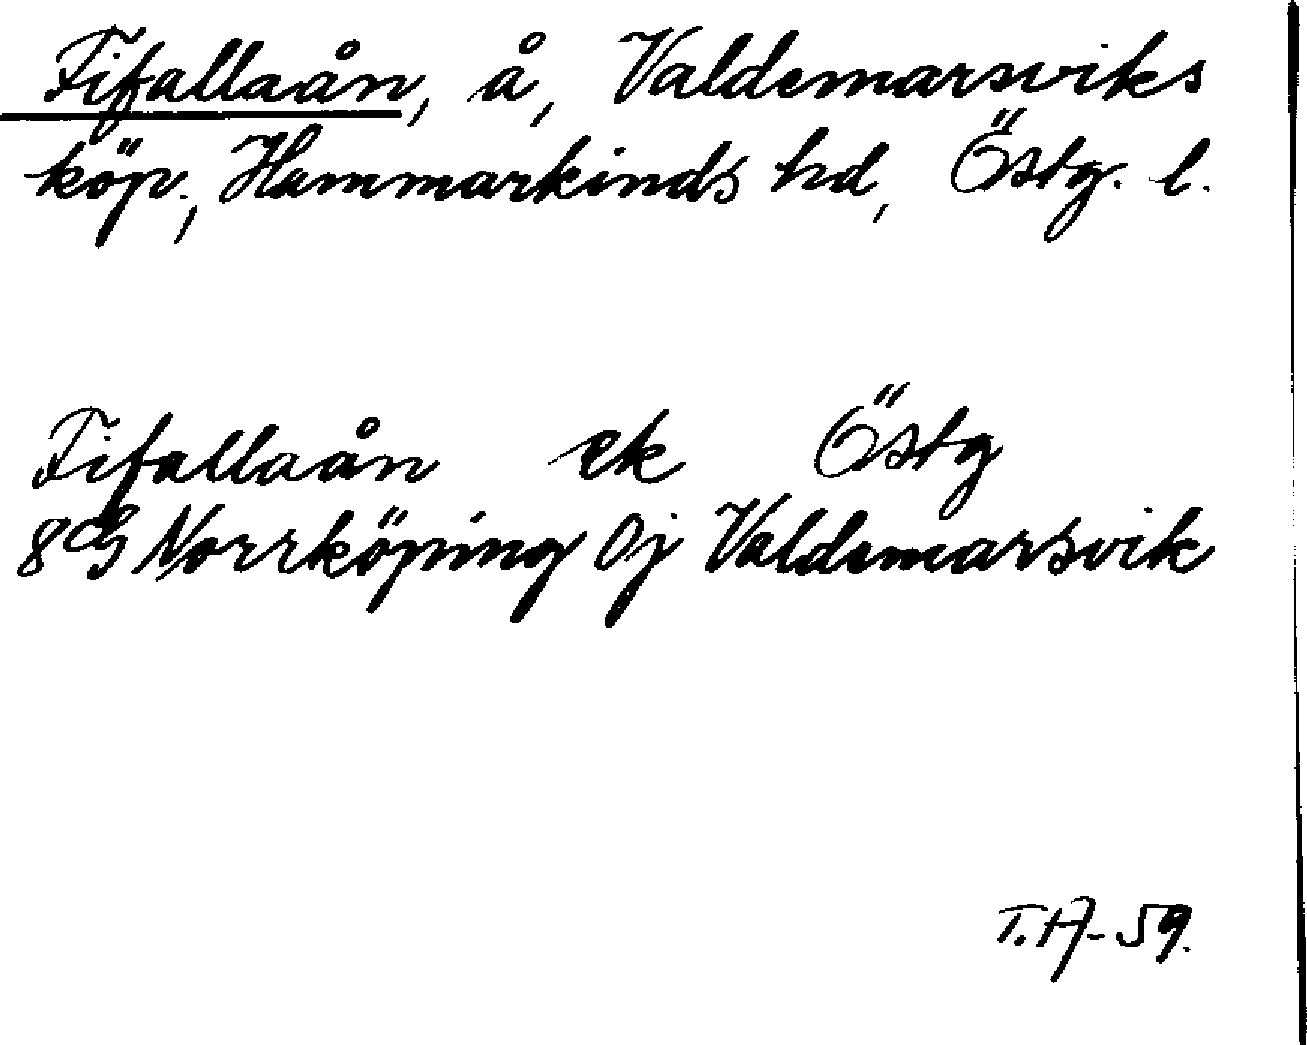 Fifallaån, å, Valdemarsviks
köp., Hammarkinds hd, Östg. l.
Fifallaån ek Östg
8G Norrköping 0j Valdemarsvik
T.A-59.